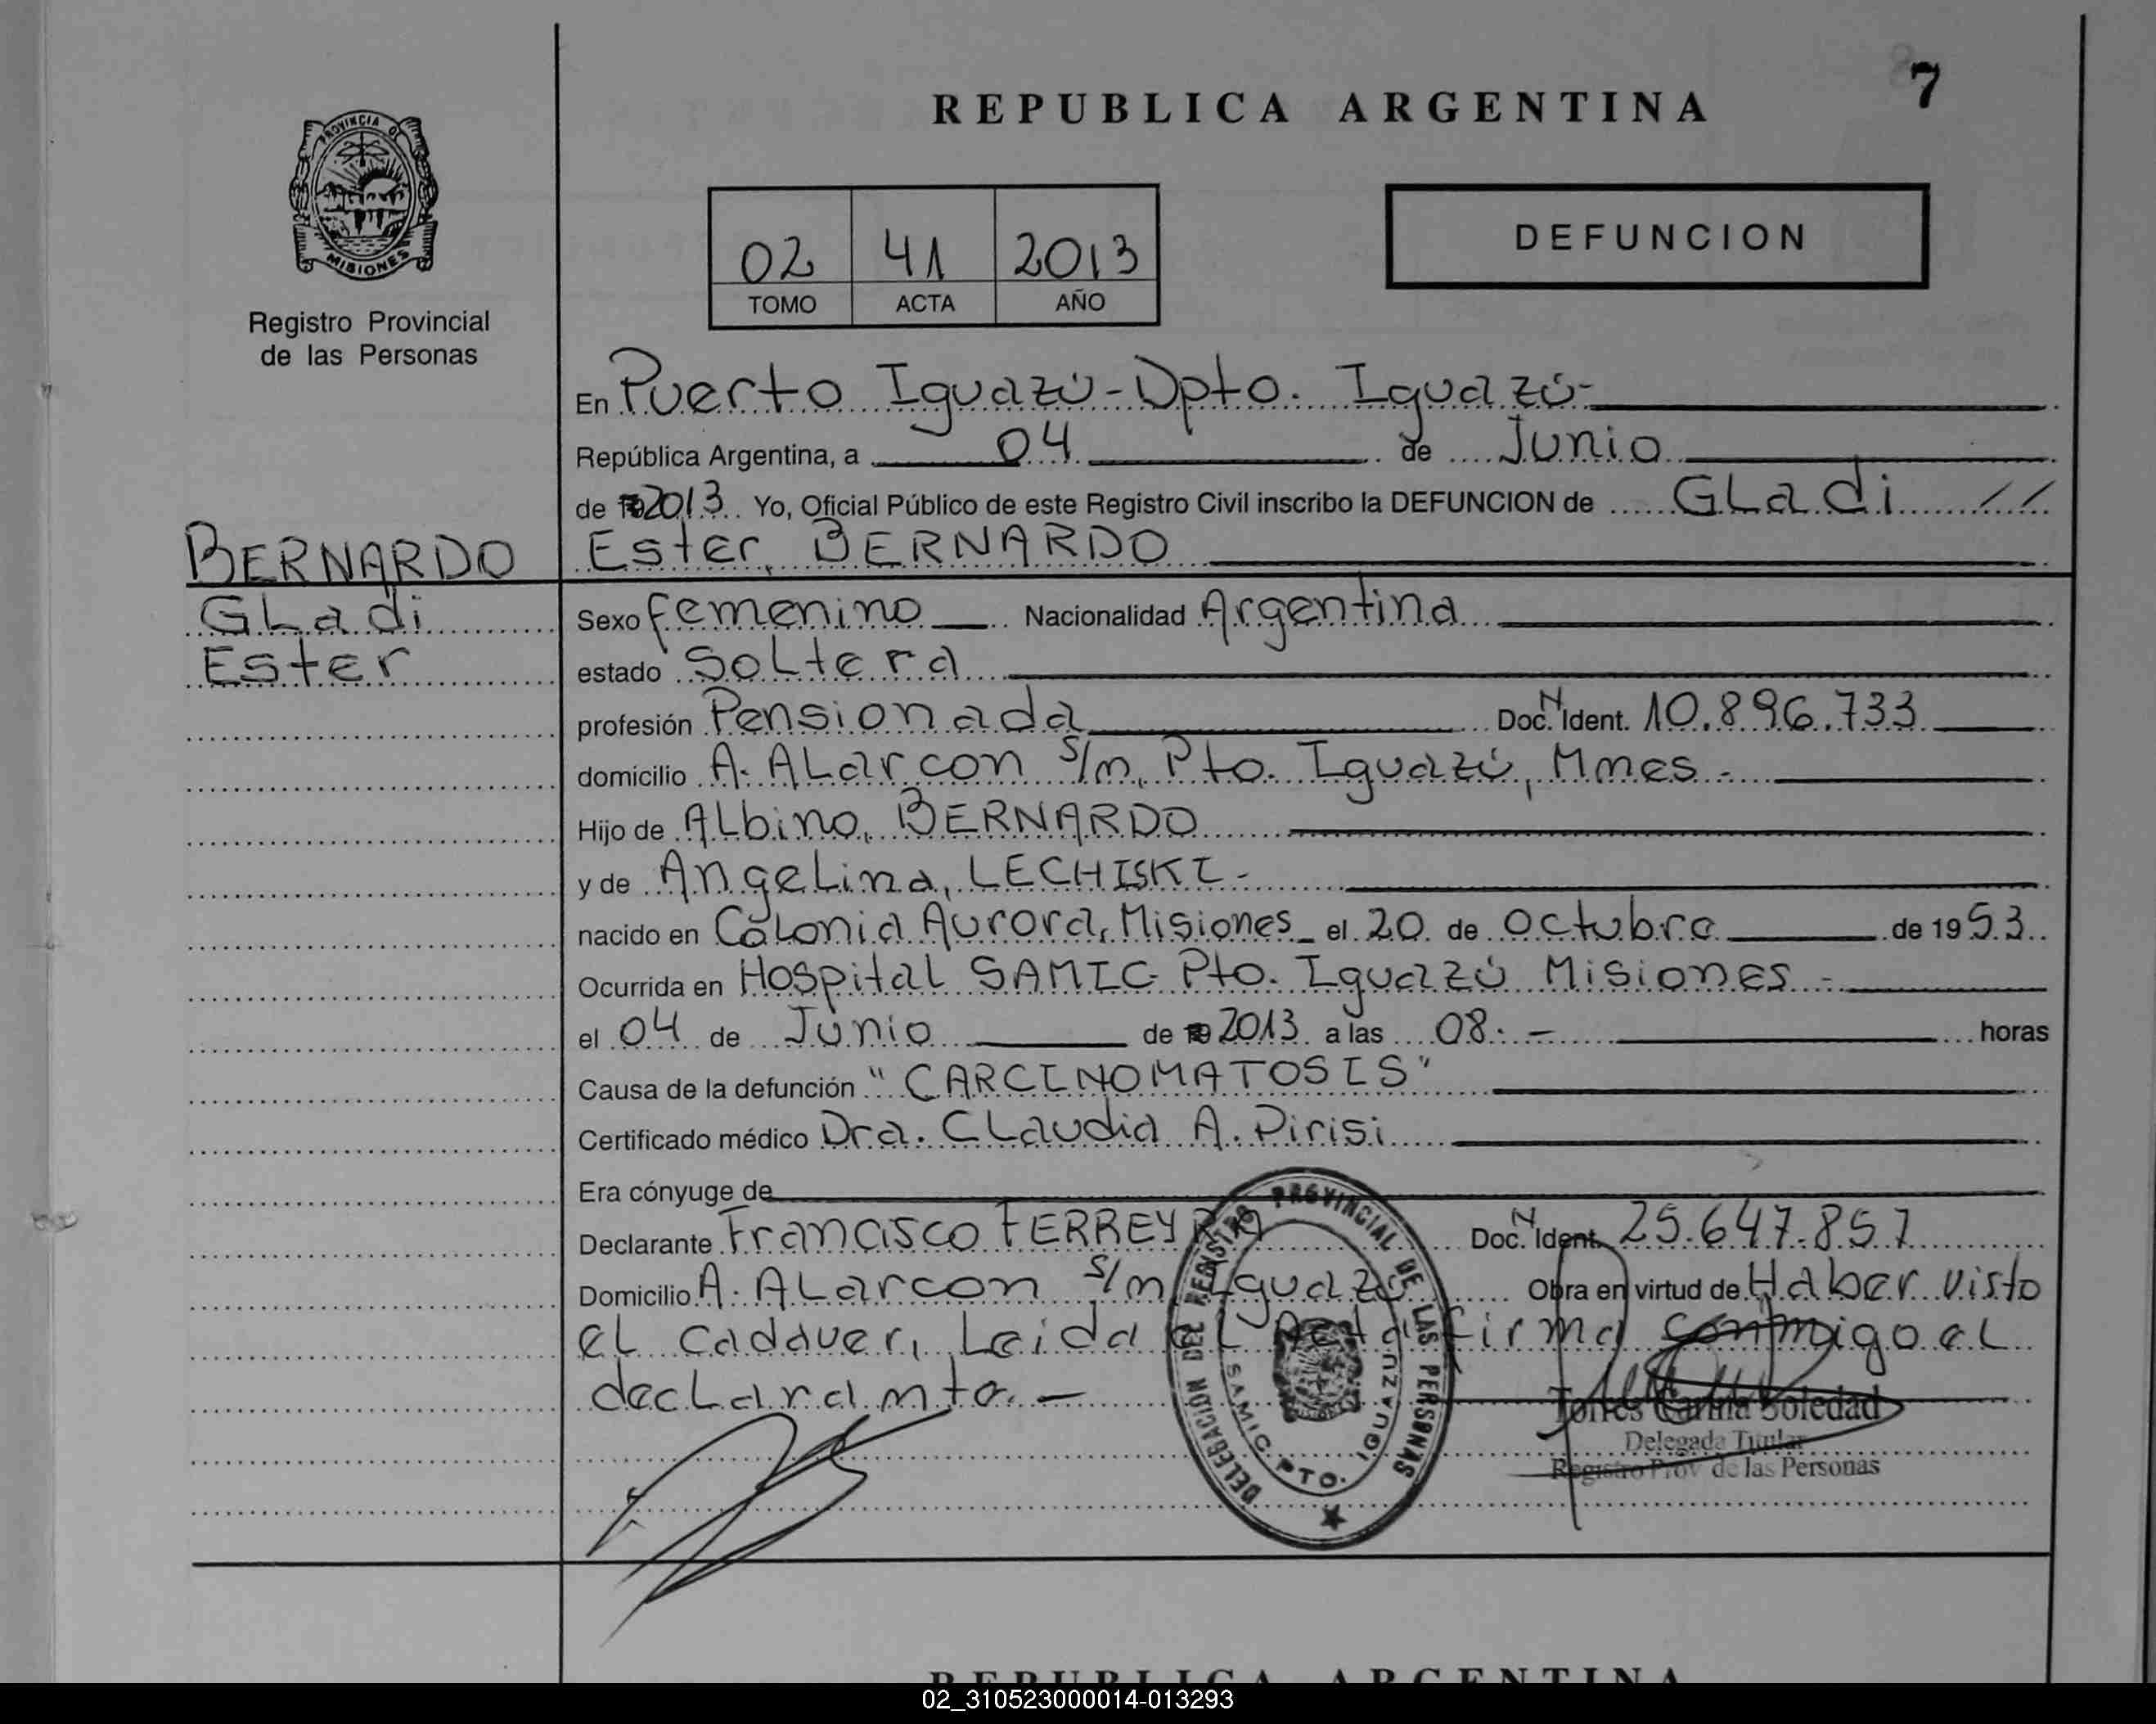 7
REPUBLICA ARGENTINA
PROVINCIA DE
MISIONES
Registro Provincial
de las Personas
02 41 2013
TOMO ACTA AÑO
DEFUNCION
En Puerto Iguazú-Dpto. Iguazú-
República Argentina, a 04 de Junio
de 2013 Yo, Oficial Público de este Registro Civil inscribo la DEFUNCION de GLadi //
Ester, BERNARDO
BERNARDO
GLadi
Ester
Sexo femenino Nacionalidad Argentina
estado SoLtera
profesión Pensionada Doc. N Ident. 10.896.733
domicilio A. ALarcon s/n, Pto. Iguazú, Mnes.-
Hijo de ALbino, BERNARDO
y de AngeLina, LECHISKI-
nacido en CoLonia Aurora, Misiones el 20 de octubre de 1953
Ocurrida en Hospital SAMIC Pto. Iguazú Misiones.-
el 04 de Junio de 2013 a las 08:- horas
Causa de la defunción "CARCINOMATOSIS"
Certificado médico Dra. CLaudia A. Pirisi
Era cónyuge de
Declarante Francisco FERREYRA Doc. N Ident. 25.647.857
Domicilio A. ALarcon s/n Iguazú Obra en virtud de Haber visto
eL cadaver, Leida eL Acta firma conmigo eL
decLarante.-
DELEGACION DEL REGISTRO PROVINCIAL DE LAS PERSONAS
SAMIC. PTO. IGUAZU
Torres Carina Soledad
Delegada Titular
Registro Prov de las Personas
REPUBLICA ARGENTINA
02_310523000014-013293